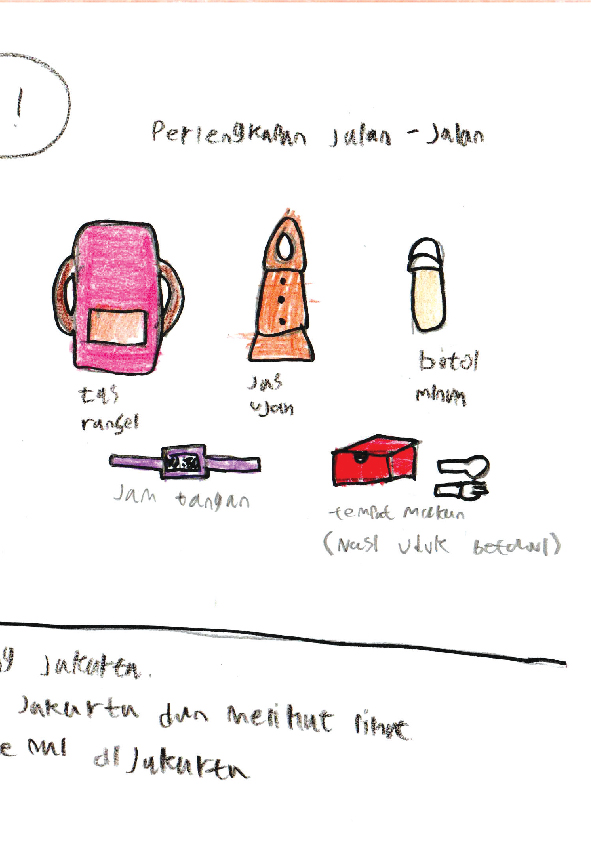 !
Perlengkapan jalan - jalan
tas
ransel
jas
ujan
botol
minum
jam tangan
tempat makan
(nasi uduk betawi)
g jakarta.
Jakarta dan melihat lihat
e mal di jakarta